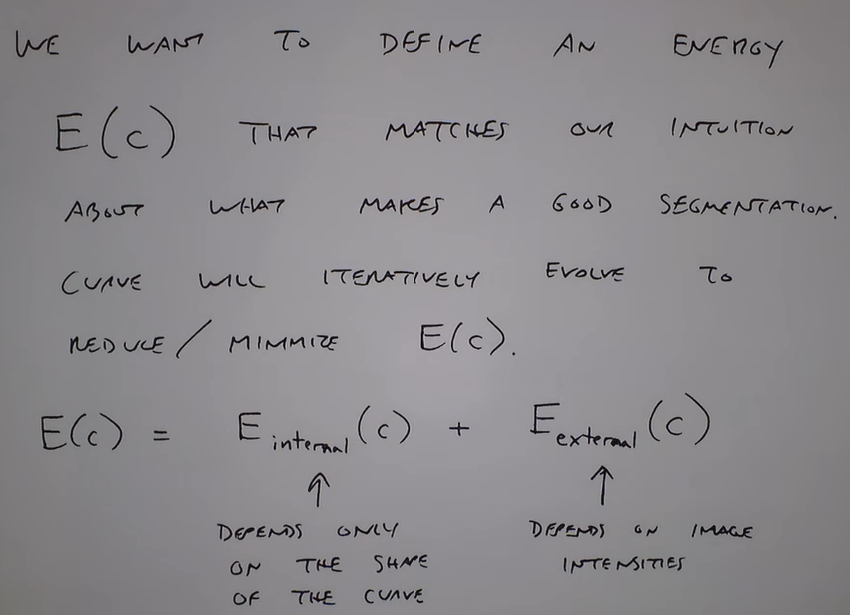 WE WANT TO DEFINE AN ENERGY
E(c) THAT MATCHES OUR INTUITION
ABOUT WHAT MAKES A GOOD SEGMENTATION.
CURVE WILL ITERATIVELY EVOLVE TO
REDUCE/MINIMIZE E(c).
E(c) = E internal (c) + E external (c)
↑ ↑
DEPENDS ONLY DEPENDS ON IMAGE
ON THE SHAPE INTENSITIES
OF THE CURVE